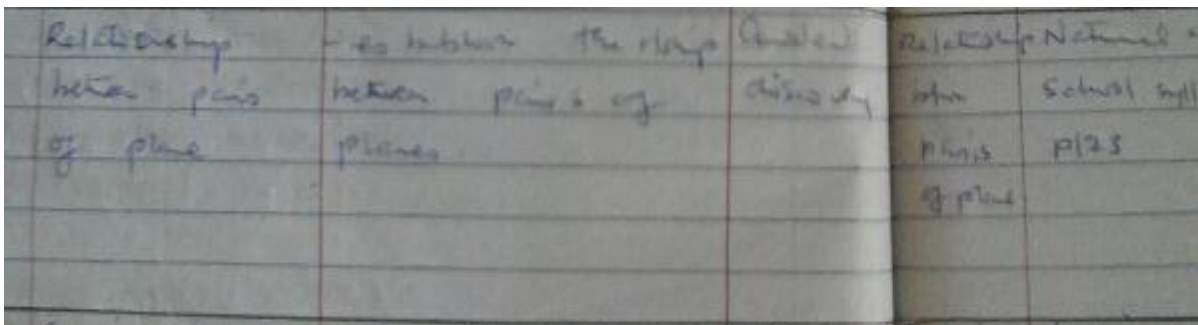 Relationship
between pairs
of plane
- establish the r/ship
between pairs of
planes
Guided
discovery
Relatioship
btn
pairs
of plane
National
School syll
P123